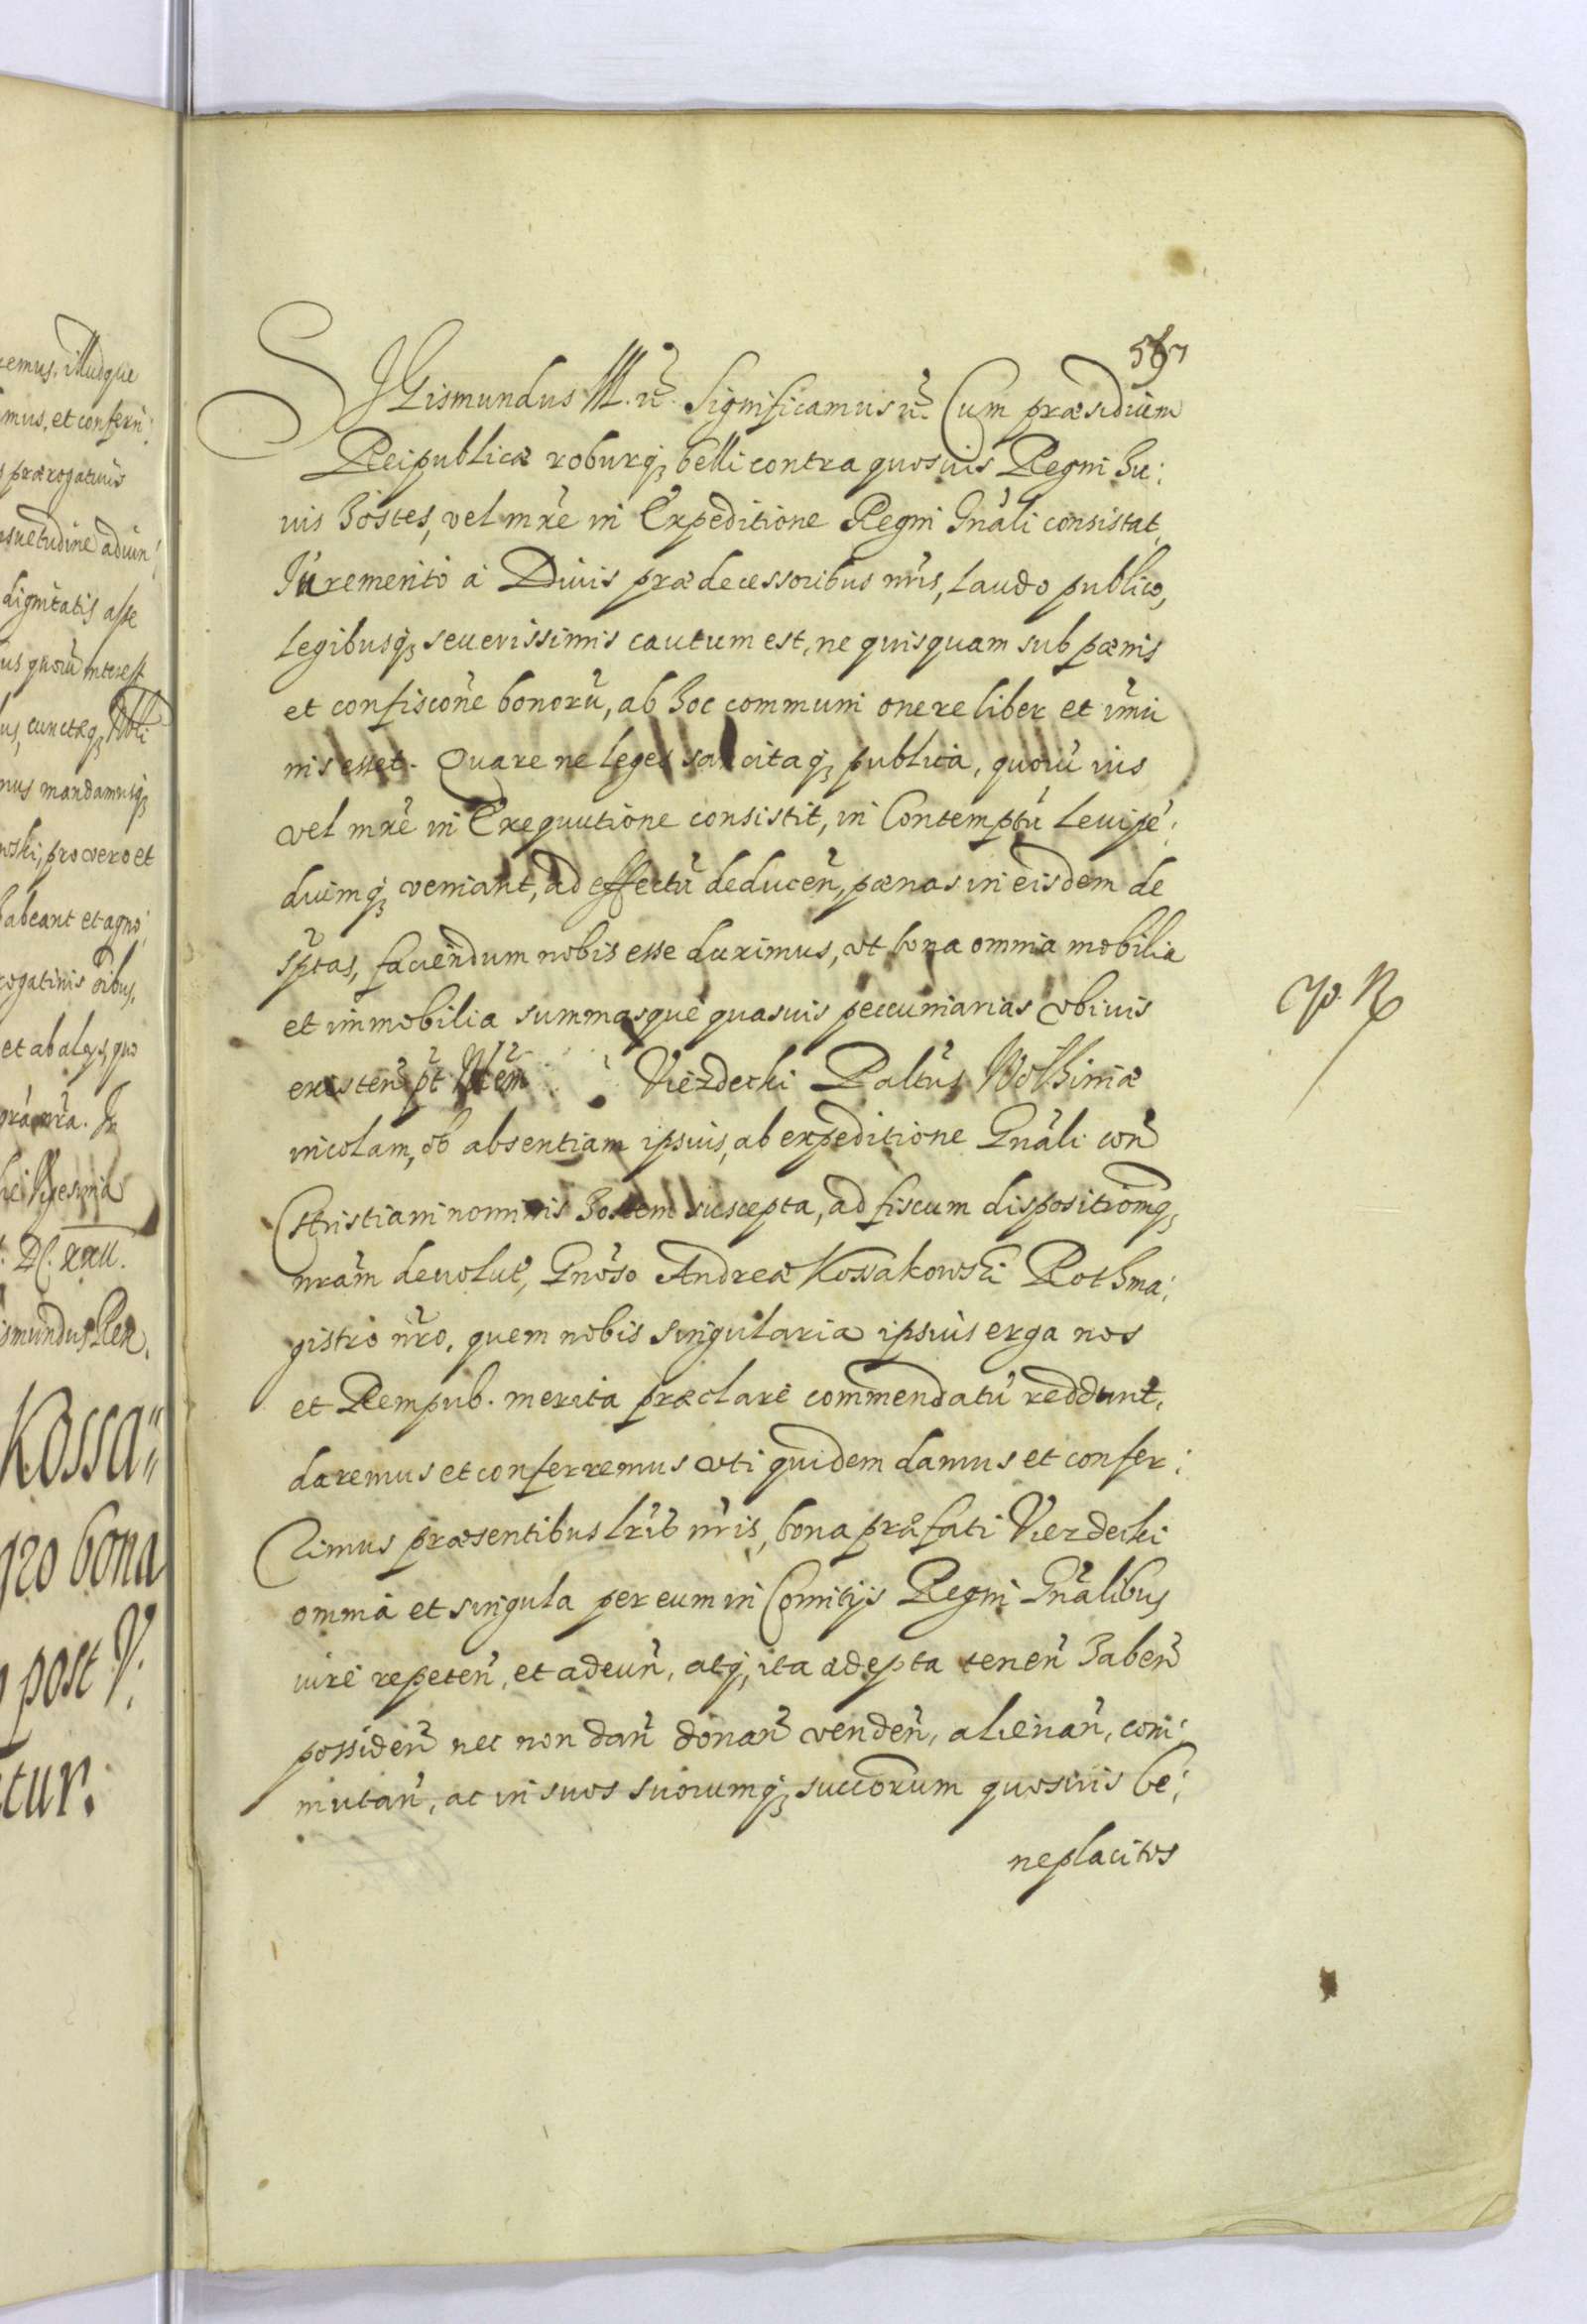 emus, illudque
mus, et conferim:
prærogatiuis
suetudine aduen:
dignitatis asse
us quorũ interest
us, cunctaq₃
mus mandamusq₃
wski, pro vero et
habeant et agno:
rogatiuis õibus,
et ab alijs, quo
grã nr̃a. In
Vigesima
DC. XXII.
ismundus Rex.
Kossa=
bona
post V.
tur.
567
SIGismundus III. etc̃. Significamus etc̃. Cum præsidium
Reipublicæ roburq₃ belli contra quosuis Regni hu:
uis hostes, vel mr̃e in Expeditione Regni Gnãli consistat,
Iuremerito à Diuis prædecessoribus nr̃is, laudo publico,
legibusq₃ seuerissimis cautum est, ne quisquam sub pænis
et confiscõne bonorũ, ab hoc communi onere liber et im̃u
nis esset. Quare ne leges sancitaq₃ publica, quorũ vis
vel mr̃e in Exequutione consistit, in Contemptũ leuipẽ:
diumq₃ veniant, ad effectũ deducen̄, pænas in eisdem de
sp̃tas, faciendum nobis esse duximus, vt bona omnia mobilia
et immobilia summasque quasuis peccuniarias vbiuis
existen̄ p̃t Viezdecki Palt̃us Wolhiniæ
incolam, ob absentiam ipsius, ab expeditione Gnãli con̄
Christiani nominis hostem suscepta, ad fiscum dispositionẽq₃
nrãm deuolut̃, Gnõso Andreæ Kossakowski Rothma:
gistro nr̃o, quem nobis singularia ipsius erga nos
et Rempub. merita præclarè commendatũ reddunt,
daremus et conferremus vti quidem damus et confer:
rimus præsentibus lr̃is nr̃is, bona præfati Viezdecki
omnia et singula per eum in Comitijs Regni Gnãlibus
iure repeten̄, et adeun̄, atq₃ ita adepta tenen̄ haben̄
possiden̄ nec non dan̄ donan̄ venden̄, alienan̄, com:
mutan̄, ac in suos suorumq₃ succorum quosuis be:
neplacitos